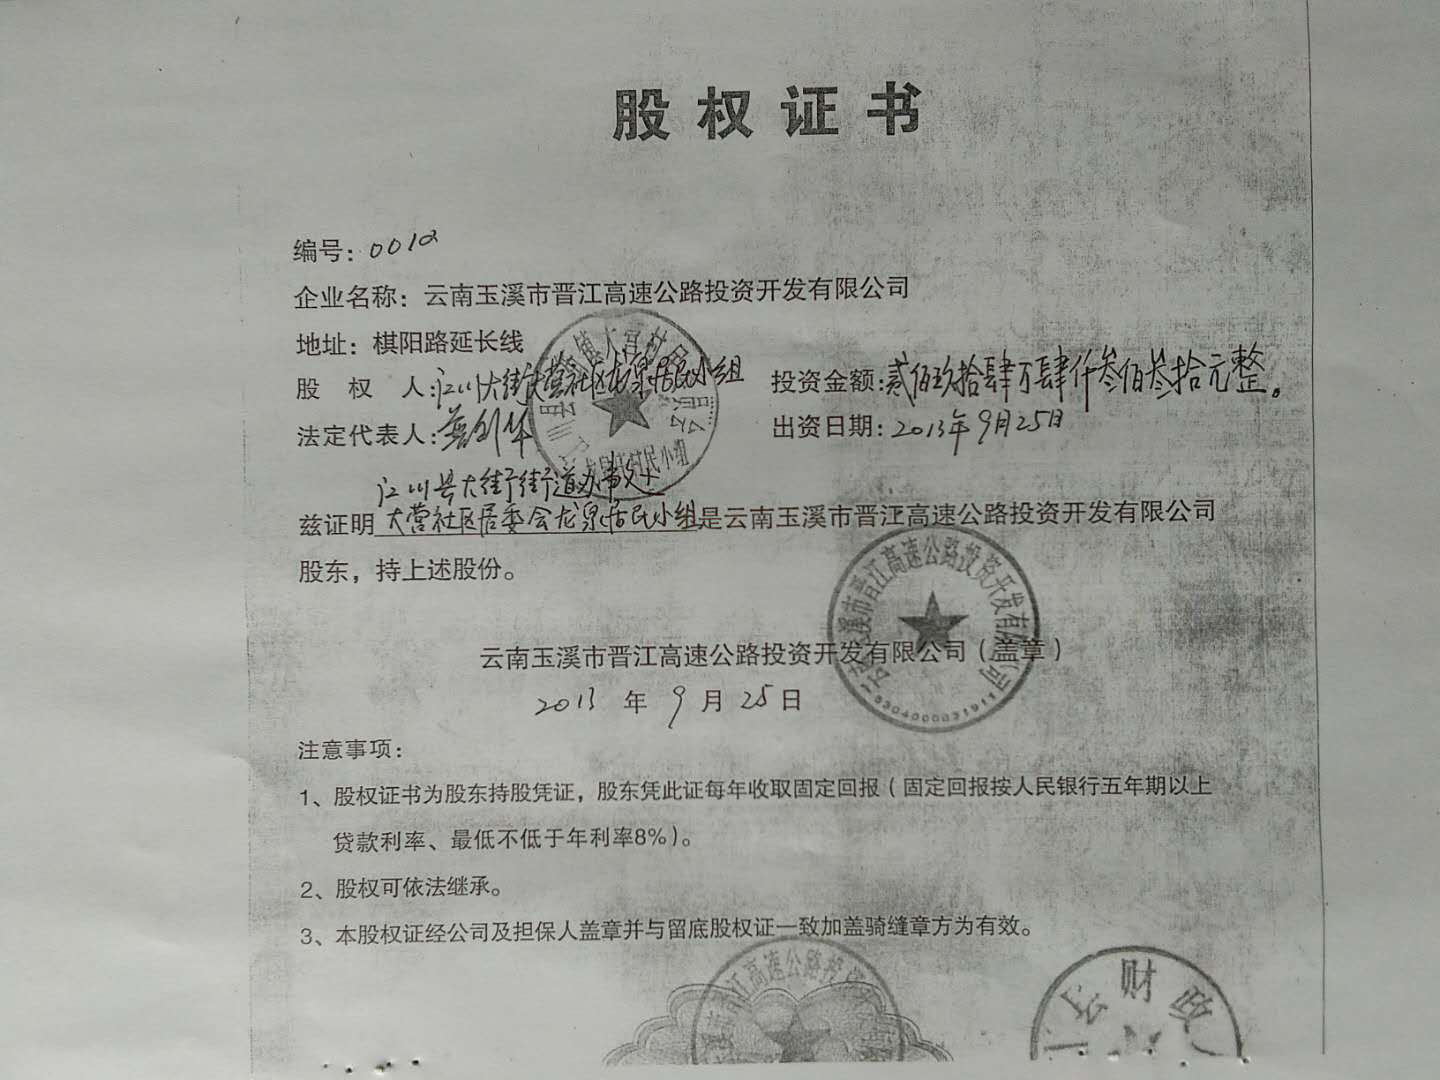 股权证书
编号：0012
企业名称：云南玉溪市晋江高速公路投资开发有限公司
地址：棋阳路延长线
股 权 人：江川大街大营社区龙泉居民小组 投资金额：贰佰玖拾肆万肆仟叁佰叁拾元整。
法定代表人： 出资日期：2013年9月25日
江川县大街街道办事处
兹证明大营社区居委会龙泉居民小组是云南玉溪市晋江高速公路投资开发有限公司
股东，持上述股份。
云南玉溪市晋江高速公路投资开发有限公司（盖章）
2013 年 9 月 25 日
注意事项：
1、股权证书为股东持股凭证，股东凭此证每年收取固定回报（固定回报按人民银行五年期以上
贷款利率、最低不低于年利率8%）。
2、股权可依法继承。
3、本股权证经公司及担保人盖章并与留底股权证一致加盖骑缝章方为有效。
溪市晋江高速公路投资开发有限公司
5304000031911
晋江高速公路投资
财政